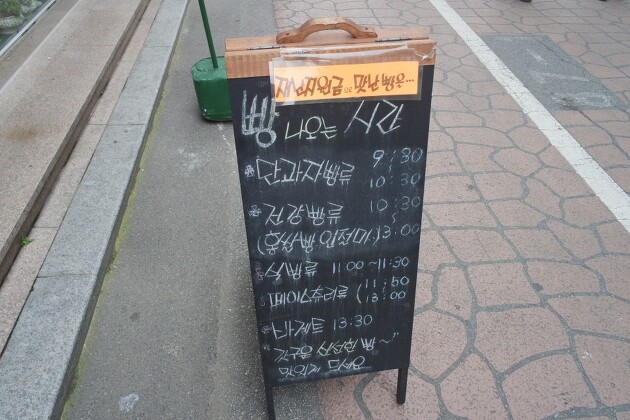 빵 나오는 시간
단과자빵류 9:30
~
10:30
건강빵류 10:30
~
(홍쌀빵 인절미) 13:00
식빵류 11:00~11:30
페이스츄리류 (11:50
13:00
바게트 13:30
갓구운 신선한 빵~"